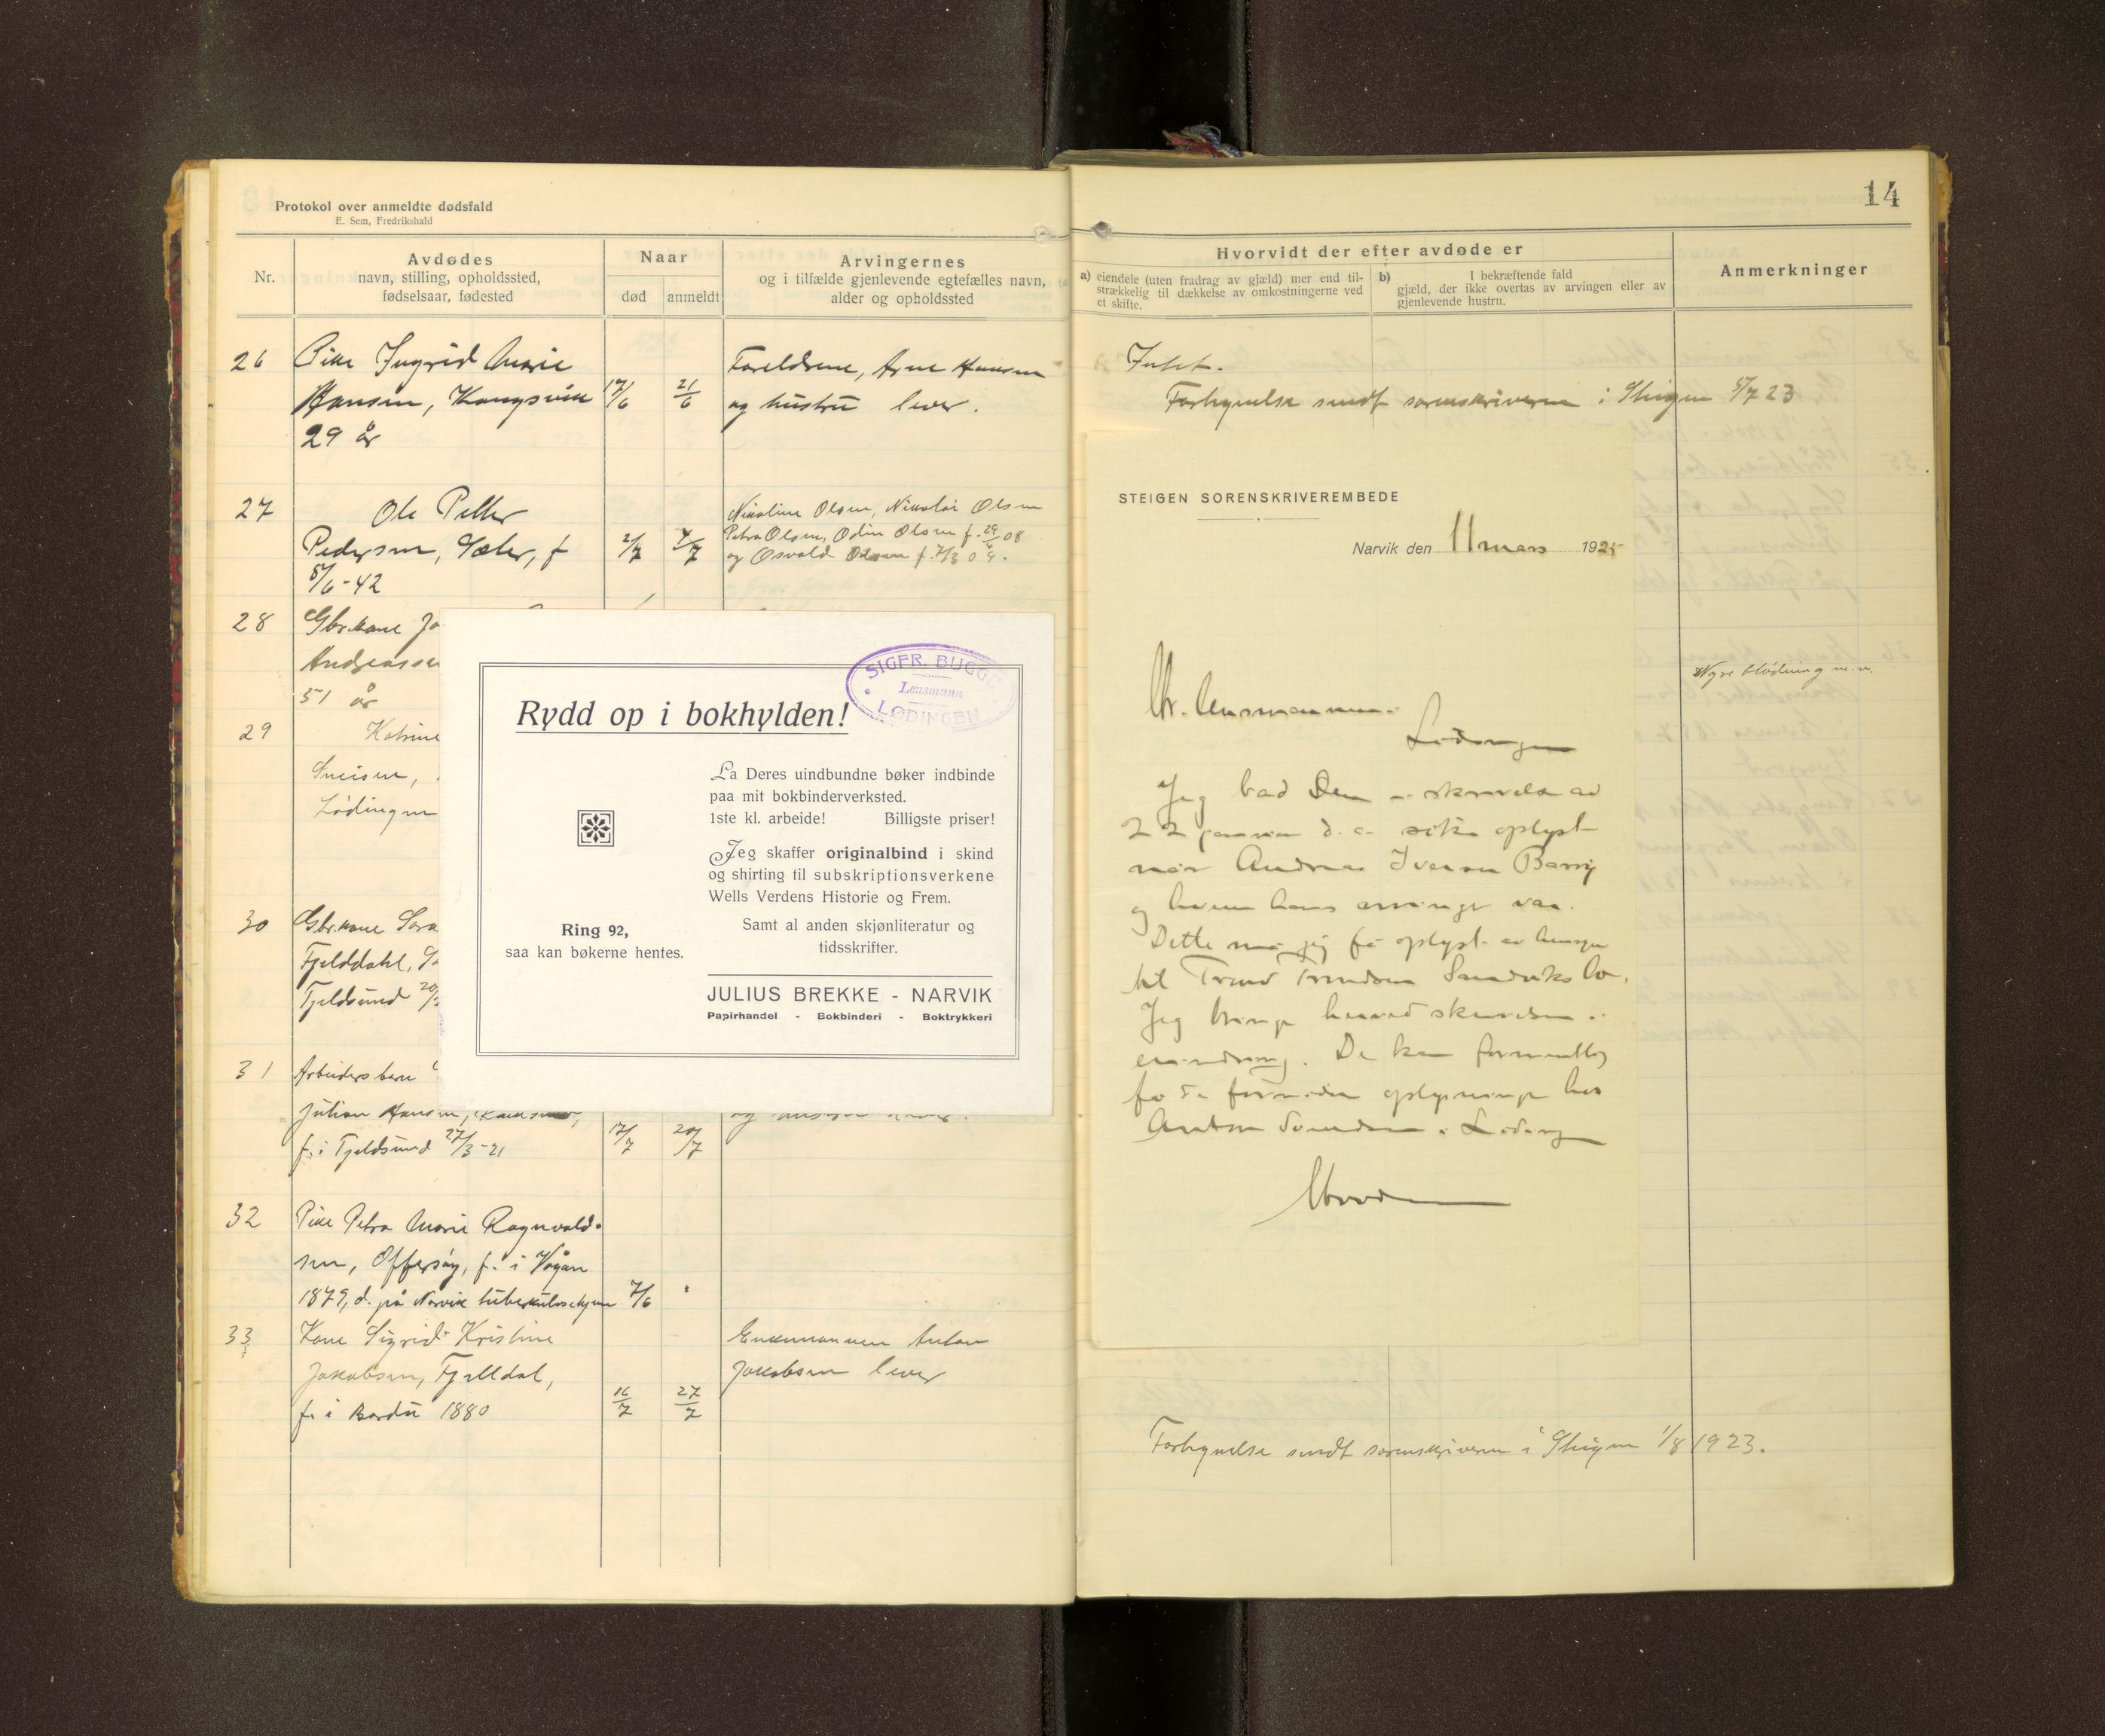 Protokol over anmeldte dødsfald
E. Sem, Fredrikshald
Nr.
Avdødes
navn, stilling, opholdssted,
fødselsaar, fødested
Naar
død
anmeldt
Arvingernes
og i tilfælde gjenlevende egtefælles navn,
alder og opholdssted
26
Pike Ingrid Marie
Hansen, Kongsvik
29 år
17/6
21/6
Foreldrene, Arne Hansen
og hustru lever.
27
Ole Petter
Pedersen, Sæter, f
5/6-42
2/7
4/7
Nikoline Olsen, Nikolai Olsen
Petra Olsen, Odin Olsen f. 29/4 08
og Osvald Olsen f. 7/3 04.
28
Gbr.kone Jo
Andreasse
51 år
29
Katrine
Lødingen
30
Gbr.kone Sara
Fjelddahl,
Tjeldsund 20/
31
Arbeidersbarn
Julian Hansen,
f. i Tjeldsund 27/3-21
17/7
20/7
32
Pike Petra Marie Ragnvald-
sen, Offersøy, f. i Vågan
1879, d. på Narvik tuberkulosehjem
7/6
33
Kone Sigrid Kristine
Jakobsen, Fjelldal,
f. i Bardu 1880
16/7
27/7
Enkemannen Anton
Jakobsen lever
SIGFR. BUGGE
Lensmann
LØDINGEN
Rydd op i bokhylden!
La Deres uindbundne bøker indbinde
paa mit bokbinderverksted.
1ste kl. arbeide! Billigste priser!
Jeg skaffer originalbind i skind
og shirting til subskriptionsverkene
Wells Verdens Historie og Frem.
Samt al anden skjønliteratur og
tidsskrifter.
Ring 92,
saa kan bøkerne hentes.
JULIUS BREKKE - NARVIK
Papirhandel - Bokbinderi - Boktrykkeri
14
Hvorvidt der efter avdøde er
a) eiendele (uten fradrag av gjæld) mer end til-
strækkelig til dækkelse av omkostningerne ved
et skifte.
b) I bekræftende fald
gjæld, der ikke overtas av arvingen eller av
gjenlevende hustru.
Anmerkninger
Intet.
Fortegnelse sendt sorenskriveren i Steigen 5/7 23
STEIGEN SORENSKRIVEREMBEDE
Narvik den 11 mars 1925
Hr. lensmannen
Lødingen
Jeg bad Dem i skrivelse av
22 januar d. a. søke oplyst
når Andreas Iversen Barøy
og hvem hans arvinger var.
Dette må jeg få oplyst av hensyn
til
Jeg bringer herved skrivelsen i
erindring. De kan formentlig
få de fornødne oplysninger hos
Anton i Lødingen
Nyreblødning m.m.
Fortegnelse sendt sorenskriveren i Steigen 1/8 1923.